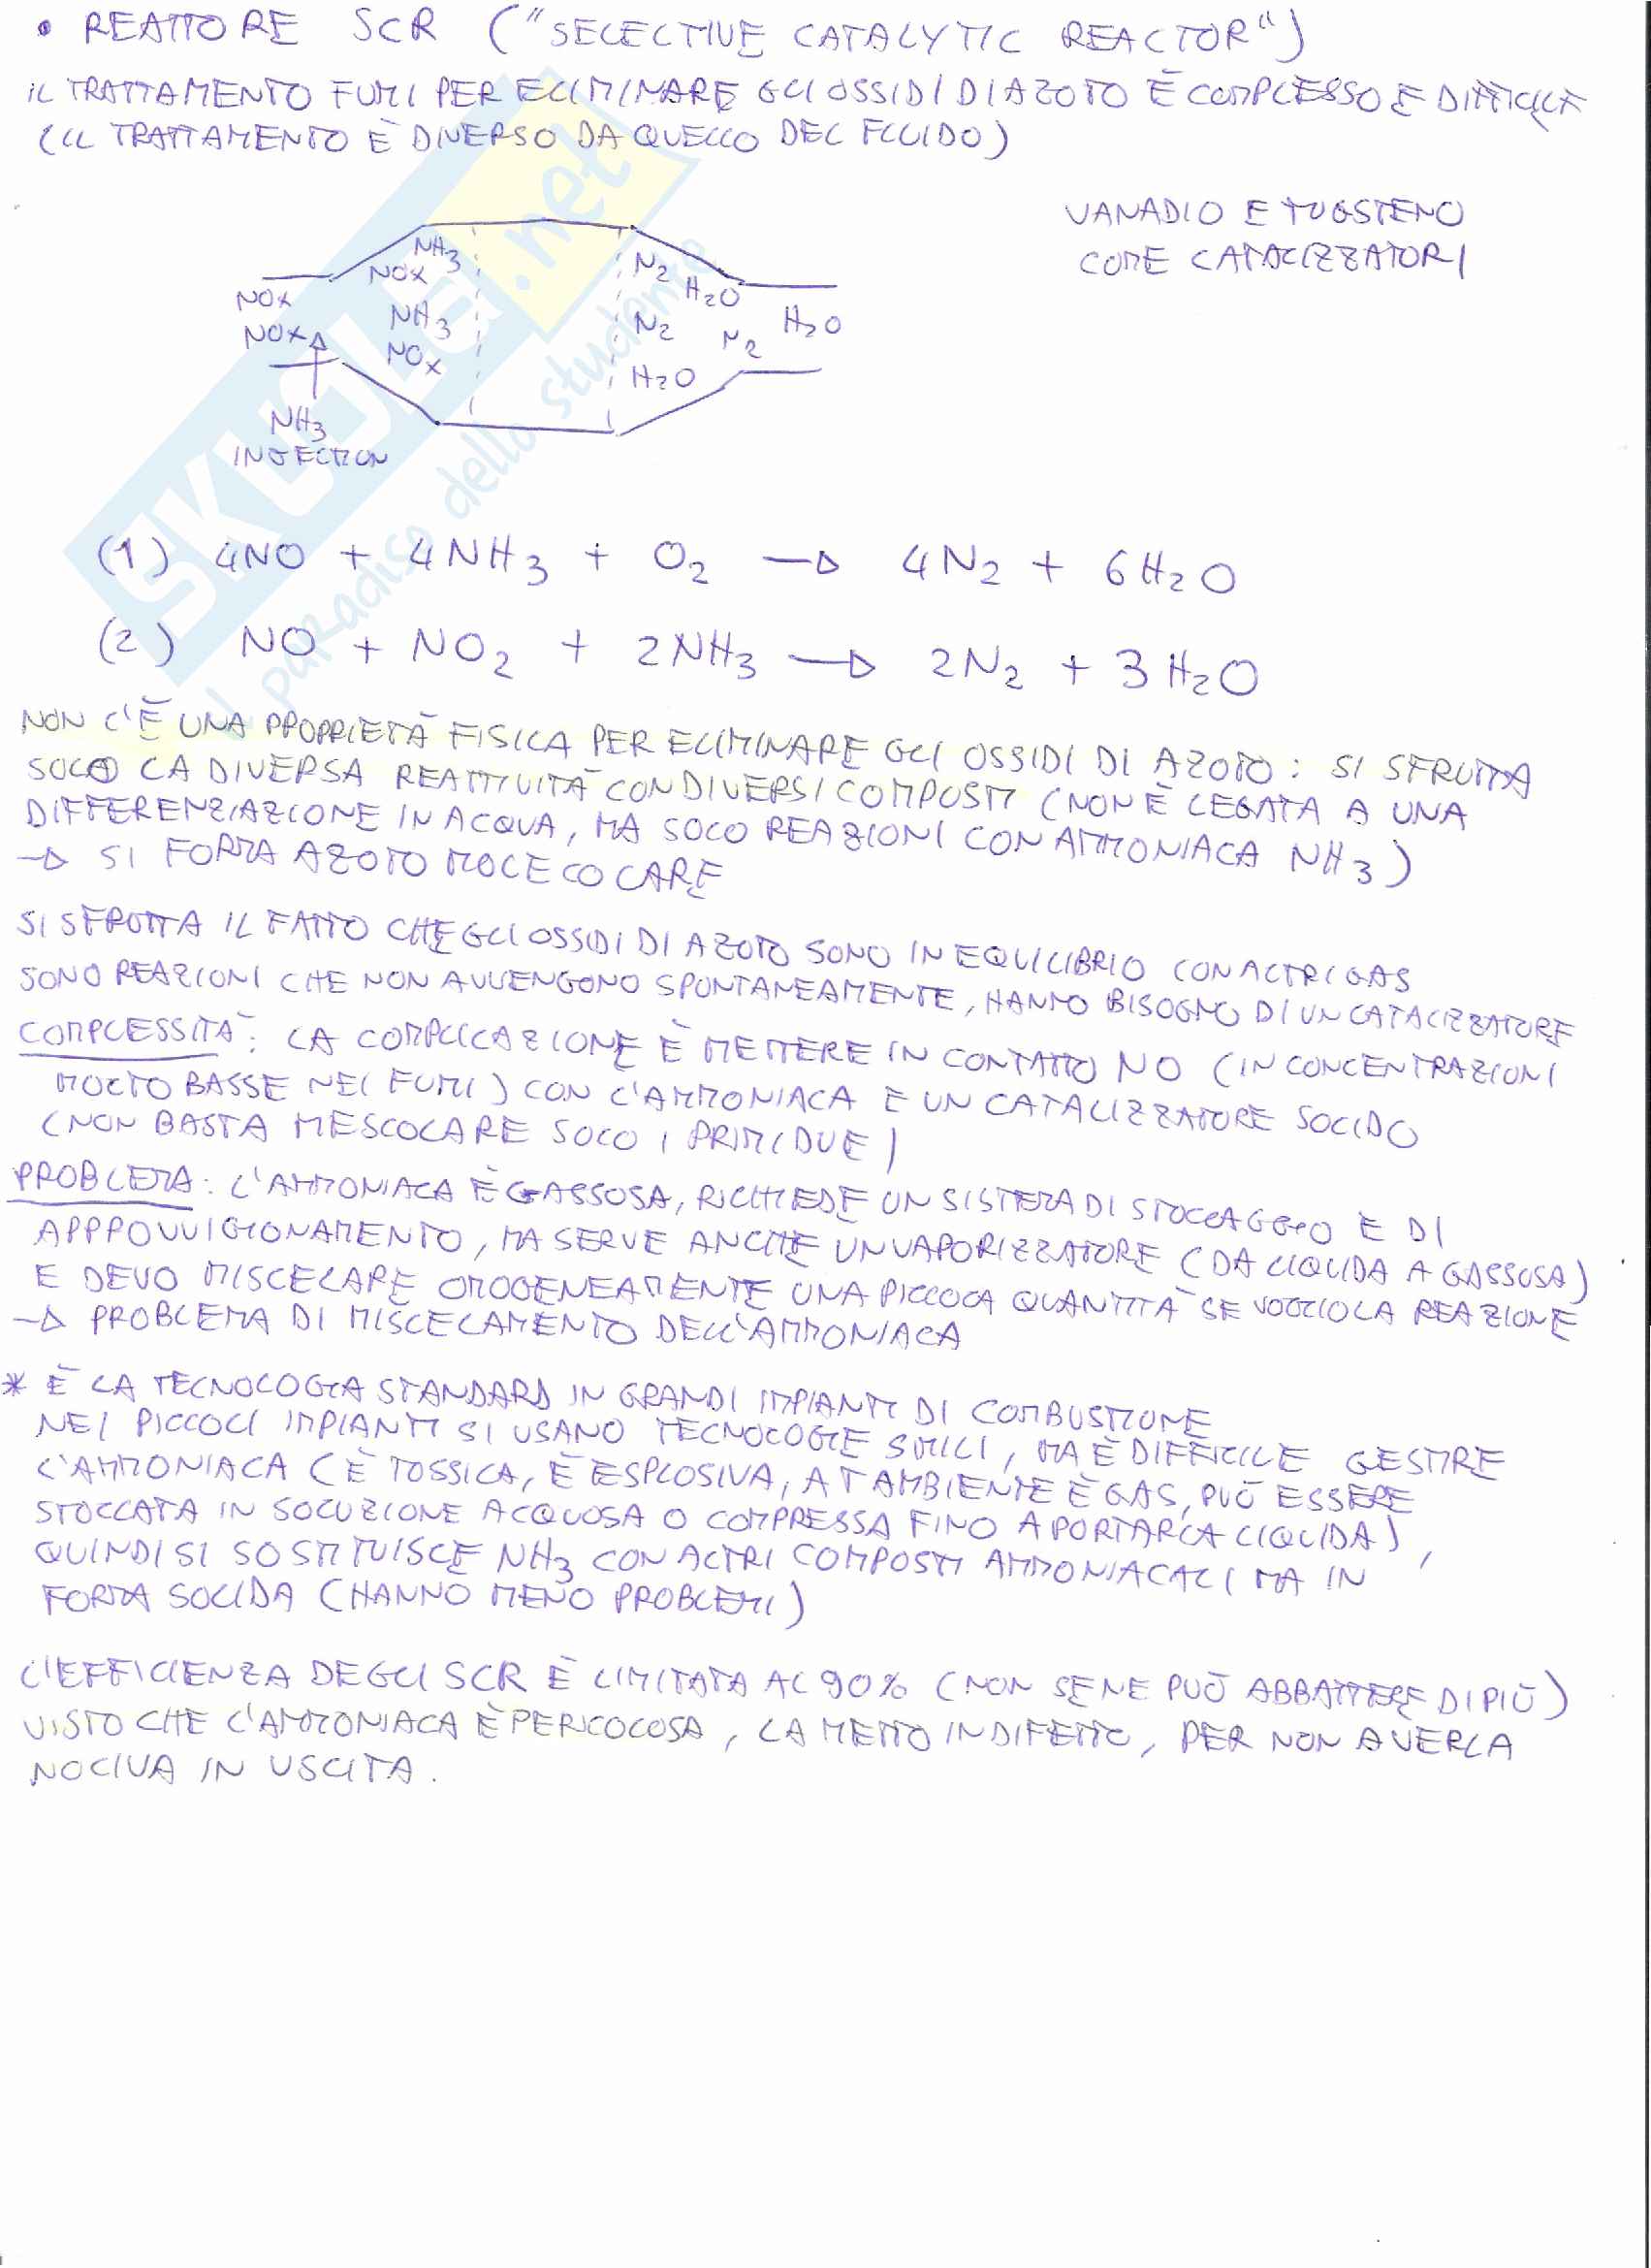 • REATTORE SCR ("SELECTIVE CATALYTIC REACTOR")
IL TRATTAMENTO FUMI PER ELIMINARE GLI OSSIDI DI AZOTO È COMPLESSO E DIFFICILE
(IL TRATTAMENTO È DIVERSO DA QUELLO DEL FLUIDO)
VANADIO E TUGSTENO
COME CATALIZZATORI
NH3
NOX
N2
H2O
NOX
NOX
NH3
NOX
N2
N2
H2O
H2O
NH3
INJECTION
SKUOLA.net
il paradiso dello studente
(1) 4NO + 4NH3 + O2 → 4N2 + 6H2O
(2) NO + NO2 + 2NH3 → 2N2 + 3H2O
NON C'È UNA PROPRIETÀ FISICA PER ELIMINARE GLI OSSIDI DI AZOTO: SI SFRUTTA
SOLO LA DIVERSA REATTIVITÀ CON DIVERSI COMPOSTI (NON È LEGATA A UNA
DIFFERENZIAZIONE IN ACQUA, MA SOLO REAZIONI CON AMMONIACA NH3)
→ SI FORMA AZOTO MOLECOLARE
SI SFRUTTA IL FATTO CHE GLI OSSIDI DI AZOTO SONO IN EQUILIBRIO CON ALTRI GAS
SONO REAZIONI CHE NON AVVENGONO SPONTANEAMENTE, HANNO BISOGNO DI UN CATALIZZATORE
COMPLESSITÀ: LA COMPLICAZIONE È METTERE IN CONTATTO NO (IN CONCENTRAZIONI
MOLTO BASSE NEI FUMI) CON L'AMMONIACA E UN CATALIZZATORE SOLIDO
(NON BASTA MESCOLARE SOLO I PRIMI DUE)
PROBLEMA: L'AMMONIACA È GASSOSA, RICHIEDE UN SISTEMA DI STOCCAGGIO E DI
APPROVVIGIONAMENTO, MA SERVE ANCHE UN VAPORIZZATORE (DA LIQUIDA A GASSOSA)
E DEVO MISCELARE OMOGENEAMENTE UNA PICCOLA QUANTITÀ SE VOGLIO LA REAZIONE
→ PROBLEMA DI MISCELAMENTO DELL'AMMONIACA
* È LA TECNOLOGIA STANDARD IN GRANDI IMPIANTI DI COMBUSTIONE
NEI PICCOLI IMPIANTI SI USANO TECNOLOGIE SIMILI, MA È DIFFICILE GESTIRE
L'AMMONIACA (È TOSSICA, È ESPLOSIVA, A T AMBIENTE È GAS, PUÒ ESSERE
STOCCATA IN SOLUZIONE ACQUOSA O COMPRESSA FINO A PORTARLA LIQUIDA),
QUINDI SI SOSTITUISCE NH3 CON ALTRI COMPOSTI AMMONIACALI MA IN
FORMA SOLIDA (HANNO MENO PROBLEMI)
L'EFFICIENZA DEGLI SCR È LIMITATA AL 90% (NON SE NE PUÒ ABBATTERE DI PIÙ)
VISTO CHE L'AMMONIACA È PERICOLOSA, LA METTO IN DIFETTO, PER NON AVERLA
NOCIVA IN USCITA.